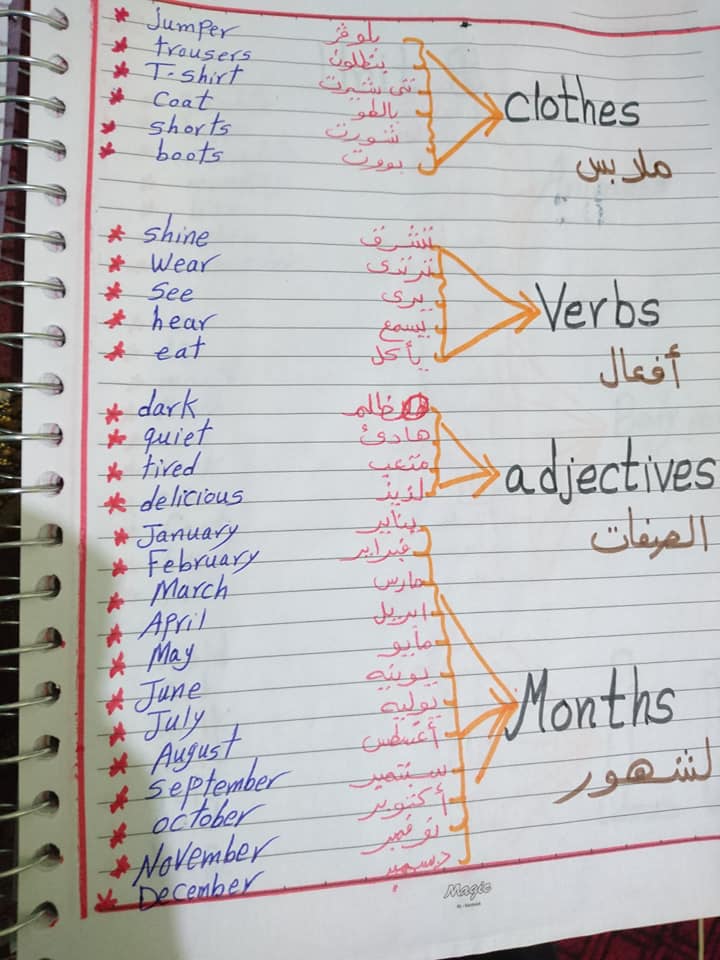 jumper بلوفر
trousers بنطلون
T-shirt تى شيرت
Coat بالطو
shorts شورت
boots بووت
clothes
ملابس
shine تشرق
Wear ترتدى
See يرى
hear يسمع
eat يأكل
Verbs
أفعال
dark مظلم
quiet هادئ
tired متعب
delicious لذيذ
adjectives
الصفات
January يناير
February فبراير
March مارس
April ابريل
May مايو
June يونيه
July يوليه
August أغسطس
September سبتمبر
October أكتوبر
November نوفمبر
December ديسمبر
Months
لشهور
Magic